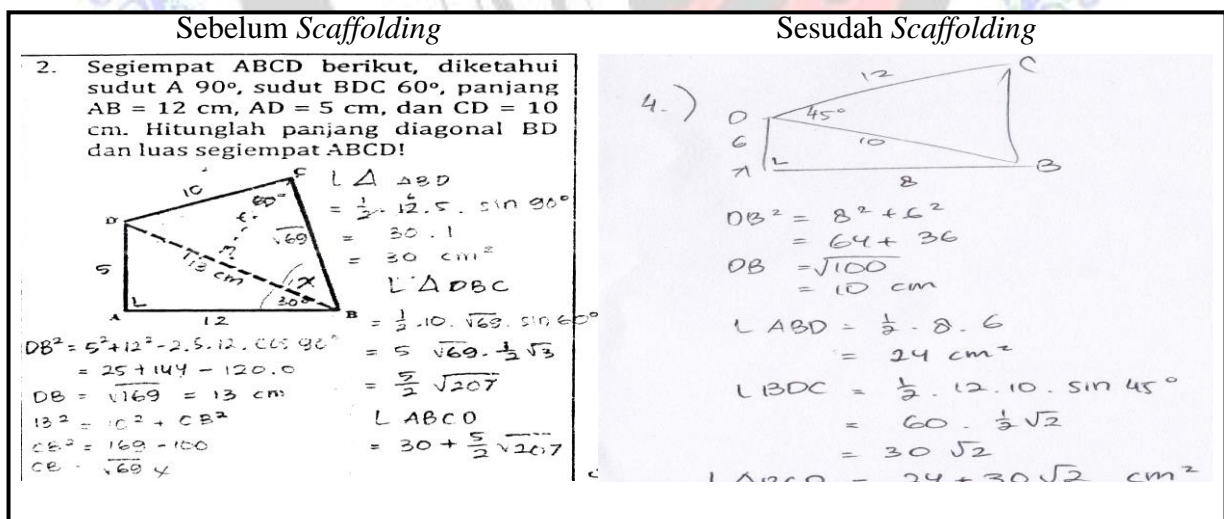 Sebelum Scaffolding
Sesudah Scaffolding
2. Segiempat ABCD berikut, diketahui
sudut A 90°, sudut BDC 60°, panjang
AB = 12 cm, AD = 5 cm, dan CD = 10
cm. Hitunglah panjang diagonal BD
dan luas segiempat ABCD!
10
C
60°
D
√69
13 cm
5
x
30°
A
12
B
DB² = 5² + 12² - 2.5.12. cos 90°
= 25 + 144 - 120.0
DB = √169 = 13 cm
13² = 10² + CB²
CB² = 169 - 100
CB = √69
L Δ ABD
= ½ . 12 . 5 . sin 90°
= 30 . 1
= 30 cm²
L Δ DBC
= ½ . 10 . √69 . sin 60°
= 5 √69 . ½ √3
= 5/2 √207
L ABCD
= 30 + 5/2 √207
4.)
12
C
D
45°
6
10
A
B
8
DB² = 8² + 6²
= 64 + 36
DB = √100
= 10 cm
L ABD = ½ . 8 . 6
= 24 cm²
L BDC = ½ . 12 . 10 . sin 45°
= 60 . ½ √2
= 30 √2
L ABCD = 24 + 30 √2 cm²